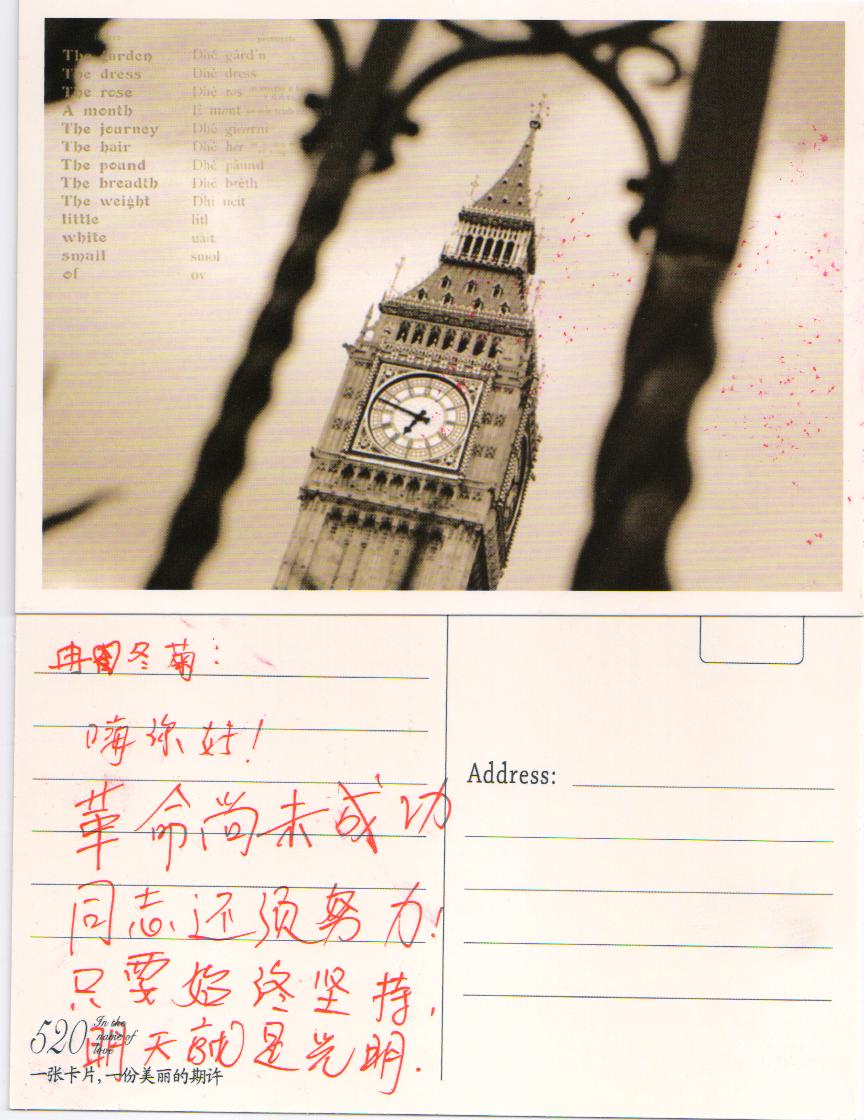 The garden Dhĕ gărd'n
The dress Dhĕ dress
The rose Dhĕ ros
A month E mont
The journey Dhĕ
The hair Dhĕ her
The pound Dhĕ păund
The breadth Dhĕ brĕth
The weight Dhi ueit
little litl
white uàit
small smol
of ov
冬菊：
嗨你好！
革命尚未成功
同志还须努力！
只要始终坚持，
明天就是光明.
520 In the name of love
一张卡片，一份美丽的期许
Address: